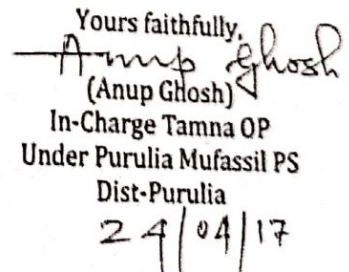 Yours faithfully,
Anup Ghosh
(Anup Ghosh)
In-Charge Tamna OP
Under Purulia Mufassil PS
Dist-Purulia
24/04/17